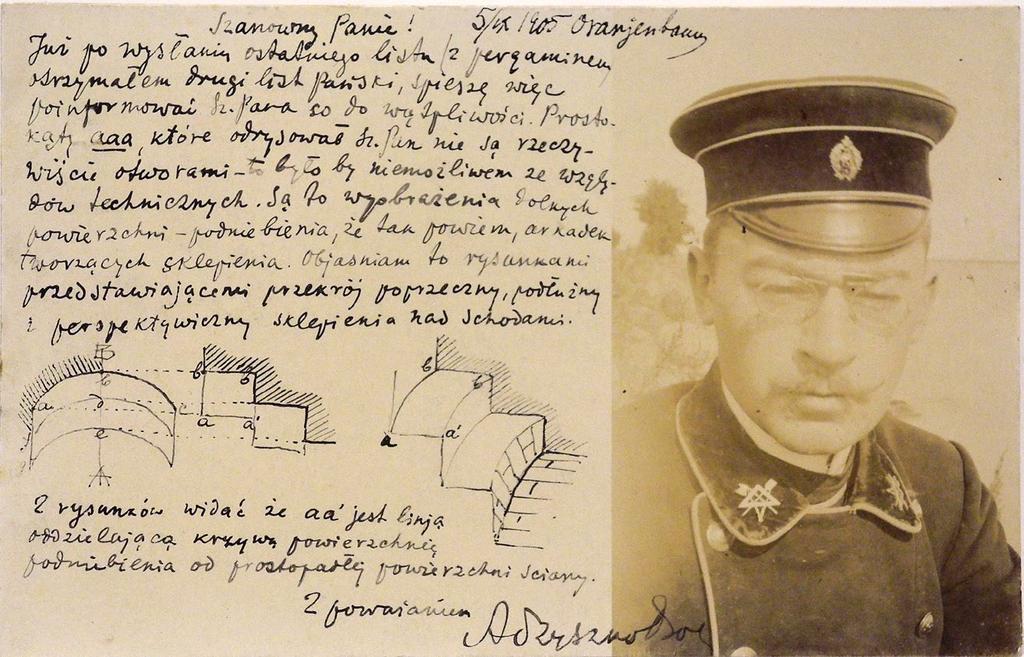 Szanowny Panie! 5/IX 1905 Oranjenbaum
Już po wysłaniu ostatniego listu (z pergaminem
otrzymałem drugi list Pański, spieszę więc
poinformować Sz. Pana co do wątpliwości. Prosto-
kąty aaa, które odrysował Sz. Pan nie są rzeczy-
wiście otworami – to było by niemożliwem ze wzglę-
dów technicznych. Są to wyobrażenia dolnych
powierzchni – podniebienia, że tak powiem, arkadek
tworzących sklepienia. Objaśniam to rysunkami
przedstawiającemi przekrój poprzeczny, podłużny
i perspektywiczny sklepienia nad schodami.
B
b b b b b
a d c a a' a a'
e
A
Z rysunków widać że aa' jest linją
oddzielającą krzywą powierzchnię
podniebienia od prostopadłej powierzchni ściany.
Z poważaniem